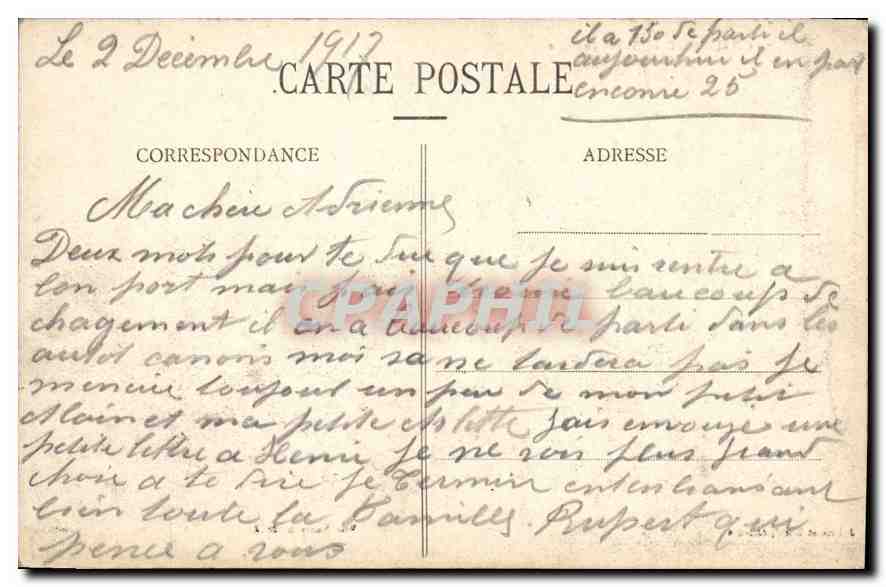 Le 2 Décembre 1917
il a 130 de parti il
aujourdhui il en part
encorre 25
CARTE POSTALE
CORRESPONDANCE
ADRESSE
Ma chère Adrienne
Deux mots pour te dire que je suis rentre a
bon port mais jais trouve beaucoup de
chagement il en a beaucoup de parti dans les
autot canons moi sa ne tardera pas je
toujout un peu de mon petit
et ma petite Arlette jais envouyé une
petite lettre a Henri je ne vois plus grand
choce a te dire je termine en tenbrasant
bien toute la famille Rupert qui
pence a vous
CPAPHIL